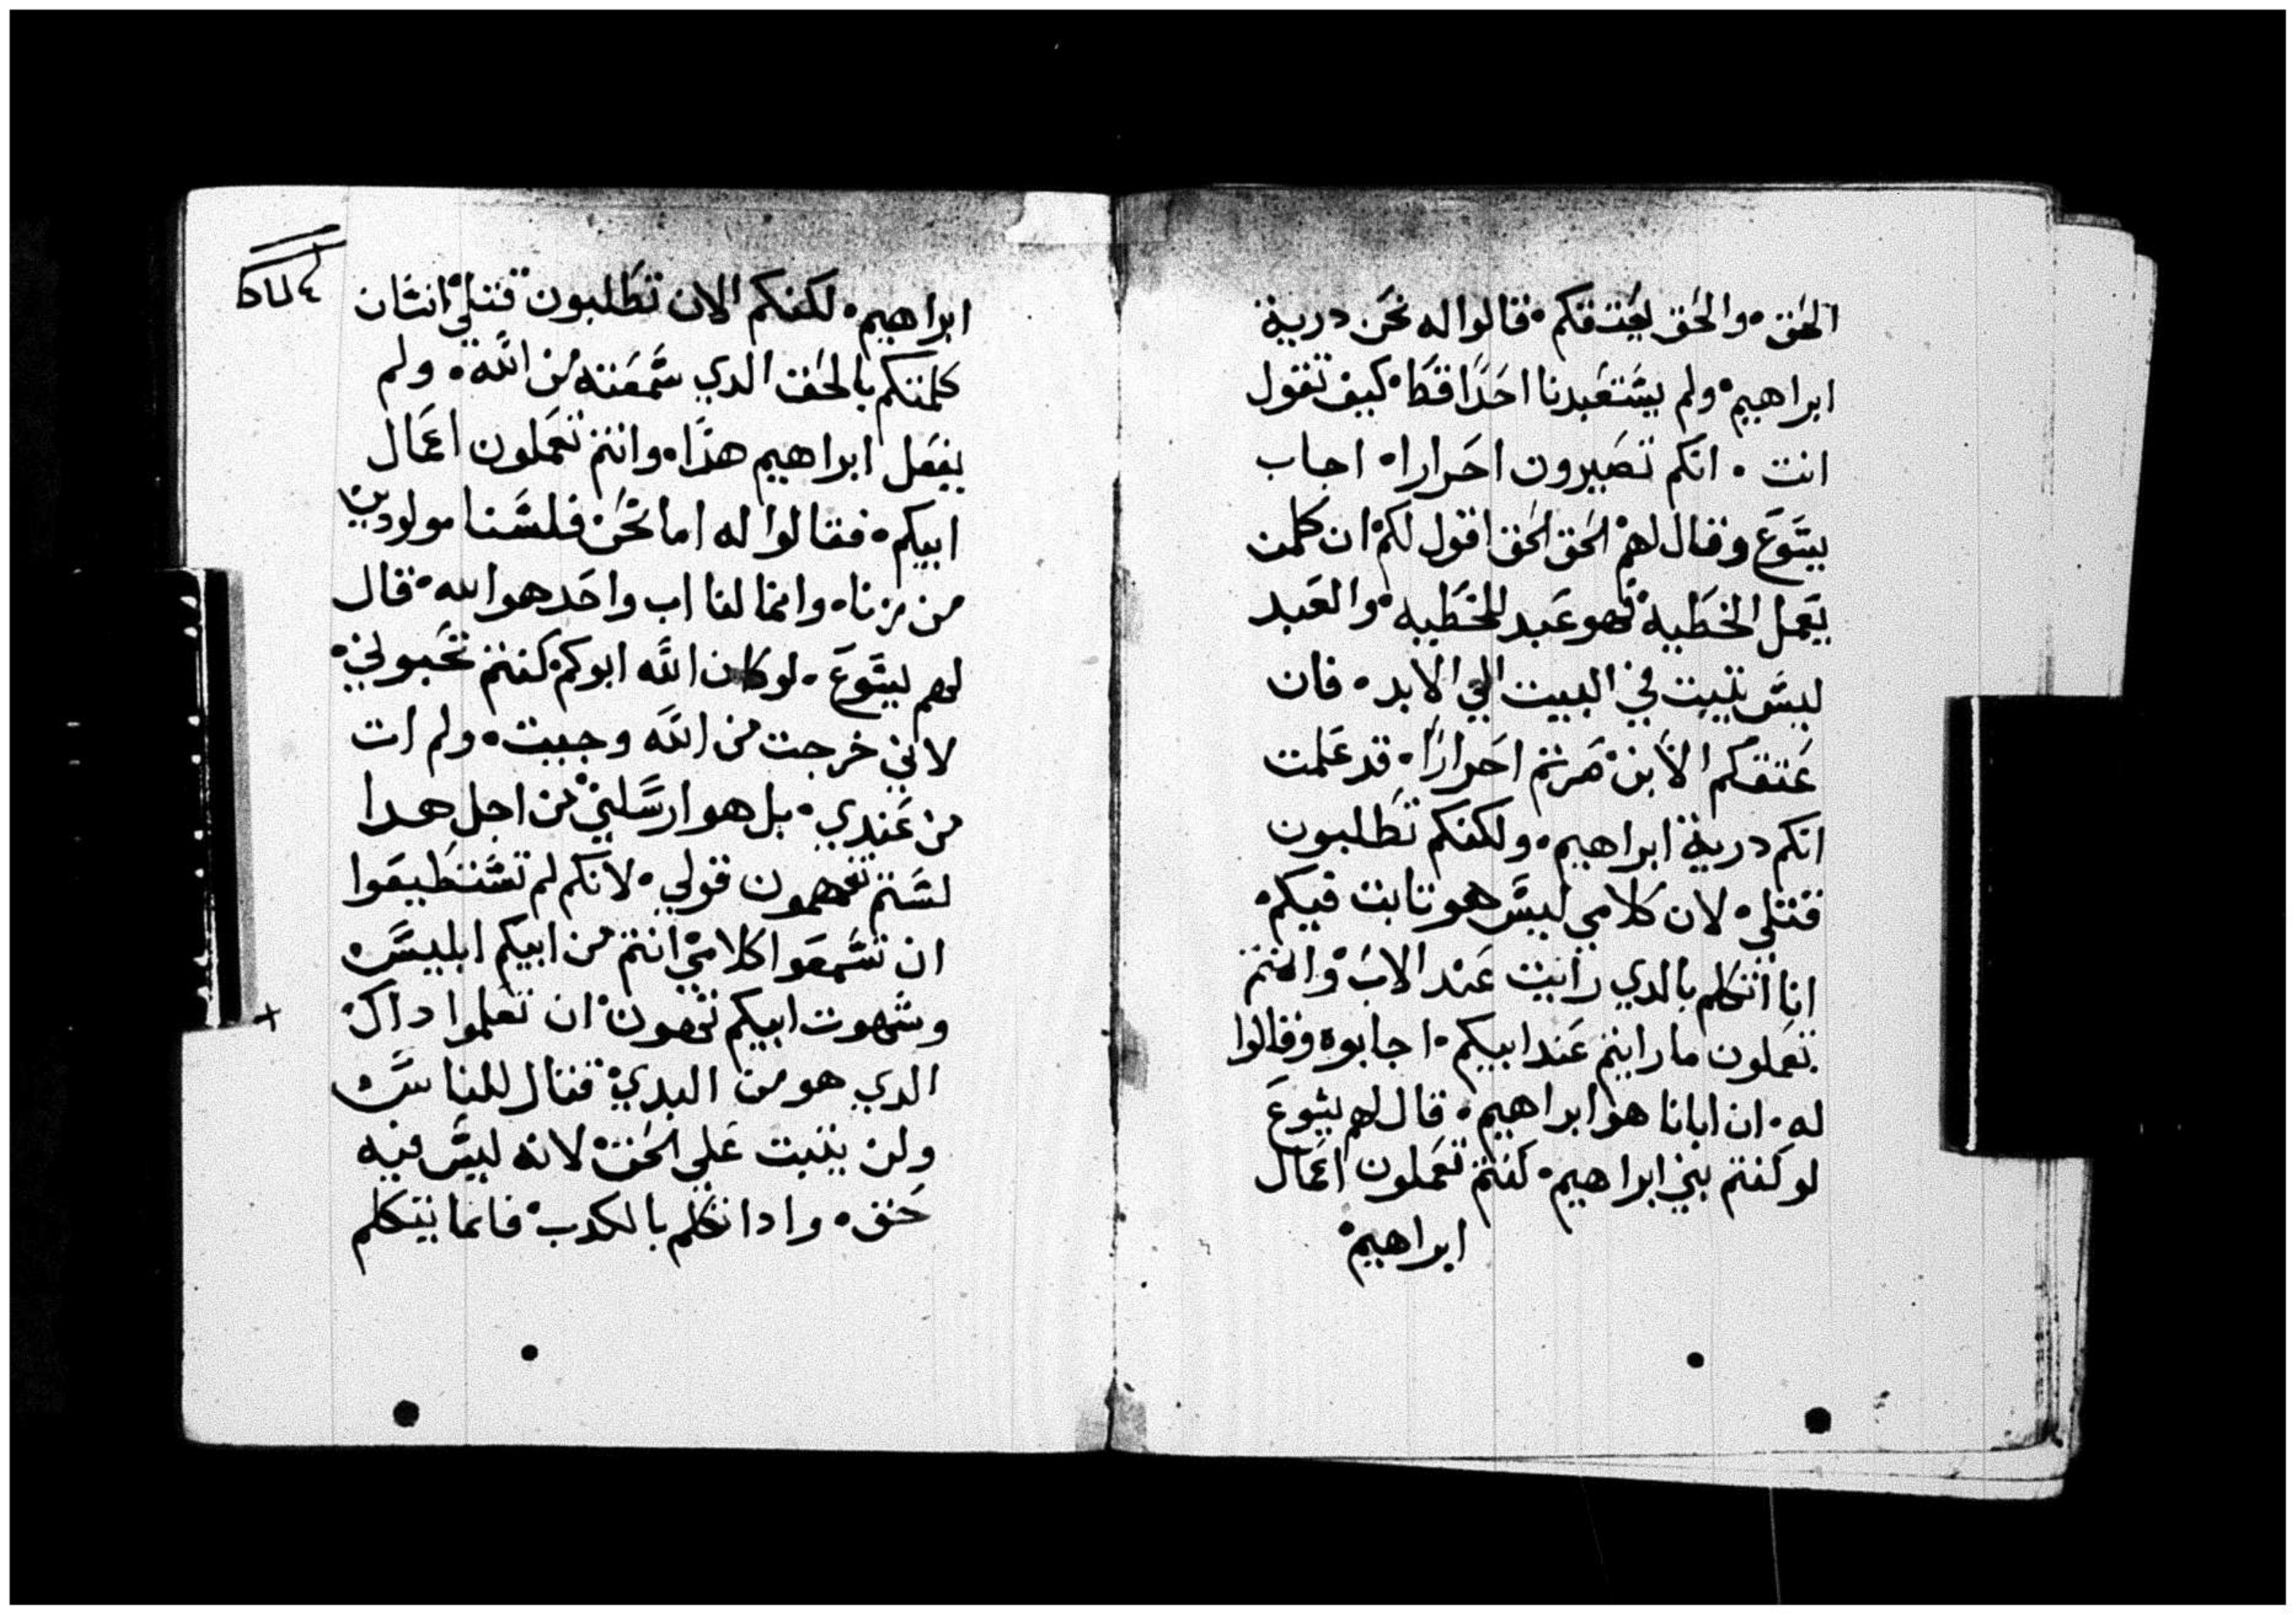 الحق۰ والحق يعتقكم۰ فقالوا له نحن درية
ابراهيم۰ ولم يستعبدنا احدًا قط۰ كيف تقول
انت ۰ انكم تصيرون احرارا۰ اجاب
يسوع وقال لهم۰ الحق الحق اقول لكم۰ ان كلمن
يعمل الخطيه۰ فهو عبد للخطيه۰ والعبد
ليس يتبت في البيت الي الابد۰ فان
عتقكم الابن۰ صرتم احرارًا۰ قد علمت
انكم درية ابراهيم۰ ولكنكم تطلبون
قتلي۰ لان كلامي ليس هو تابت فيكم۰
انا اتكلم بالدي رايت عند الاب۰ وانتم
تعملون ما رايتم عند ابيكم۰ اجابوه وقالوا
له۰ ان ابانا هو ابراهيم۰ قال لهم يسوع
لو كنتم بني ابراهيم۰ كنتم تعملون اعمال
ابراهيم۰
ابراهيم۰ لكنكم الان تطلبون قتلي۰ انسان
كلمتكم بالحق الدي سمعته من الله۰ ولم
يفعل ابراهيم هذا۰ وانتم تعملون اعمال
ابيكم۰ فقالوا له اما نحن فلسنا مولودين
من زنا۰ وانما لنا اب واحد هو الله۰ قال
لهم يسوع۰ لو كان الله ابوكم۰ كنتم تحبوني۰
لاني خرجت من الله وجيت۰ ولم ات
من عندي۰ بل هو ارسلني۰ من اجل هدا
لستم تفهمون قولي۰ لانكم لم تستطيعوا
ان تسمعوا كلامي۰ انتم من ابيكم ابليس
وشهوت ابيكم تهوون۰ ان تعلموا داك۰
الدي هو من البدي۰ قتال للناس
ولن يتبت علي الحق۰ لانه ليس فيه
حق۰ وادا تكلم بالكدب۰ فانما يتكلم